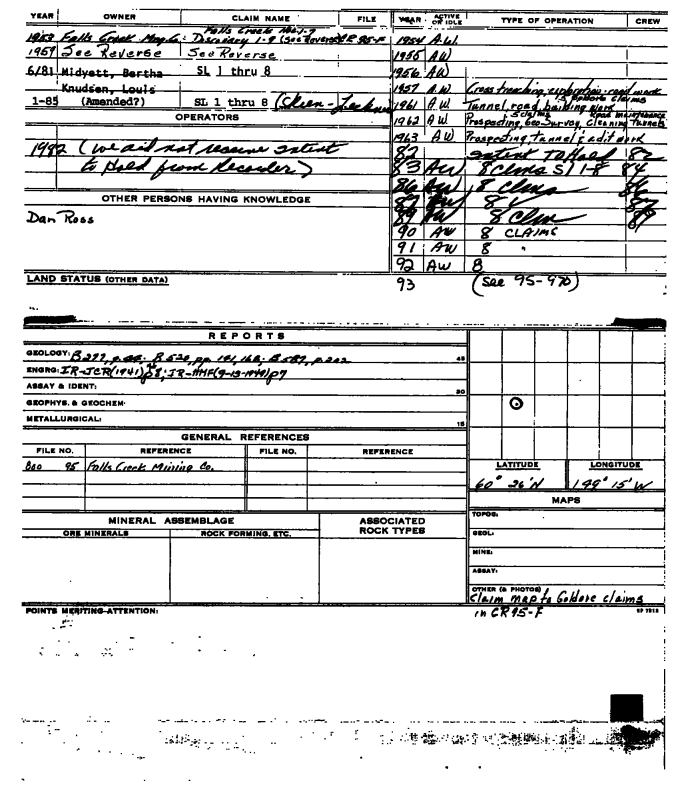 YEAR OWNER CLAIM NAME FILE YEAR ACTIVE OR IDLE TYPE OF OPERATION CREW
Falls Creek No. 1-7
1953 Falls Creek Mng Co. Discovery 1-9 (See Reverse) CR 95-F 1954 A.W.
1959 See Reverse See Reverse 1955 AW
6/81 Midyett, Bertha SL 1 thru 8 1956 AW
Knudsen, Louis 1957 A.W Cross trenching, exploration, road work
1-85 (Amended?) SL 1 thru 8 1961 A.W Tunnel, road building work
OPERATORS 1962 AW Prospecting, Geo-Survey, Cleaning Tunnels
5 claims Road maintenance
1963 AW Prospecting, tunnel & adit work
1982 (we did not receive intent 82 intent To Hold 82
to Hold from Recorder) 83 AW 8 Clms S/ 1-8 84
86 AW 8 Clms 86
OTHER PERSONS HAVING KNOWLEDGE 87 AW 8 87
Dan Ross 89 AW 8 Clm 89
90 AW 8 CLAIMS
91 AW 8 "
92 AW 8
LAND STATUS (OTHER DATA) 93 (See 95-970)
REPORTS
GEOLOGY: B277, B520, pp. 141, 168; B587, p202 45
ENGRG: IR-JCR(1941) p8; IR-HMF(9-13-1949) p7
ASSAY & IDENT: 30
GEOPHYS. & GEOCHEM:
METALLURGICAL: 15
GENERAL REFERENCES
FILE NO. REFERENCE FILE NO. REFERENCE
95 Falls Creek Mining Co.
LATITUDE LONGITUDE
60° 26'N 149° 15'W
MAPS
MINERAL ASSEMBLAGE ASSOCIATED ROCK TYPES
ORE MINERALS ROCK FORMING, ETC.
TOPOG:
GEOL:
MINE:
ASSAY:
OTHER (& PHOTOS)
Claim map to Goldore claims
in CR95-F
POINTS MERITING ATTENTION: